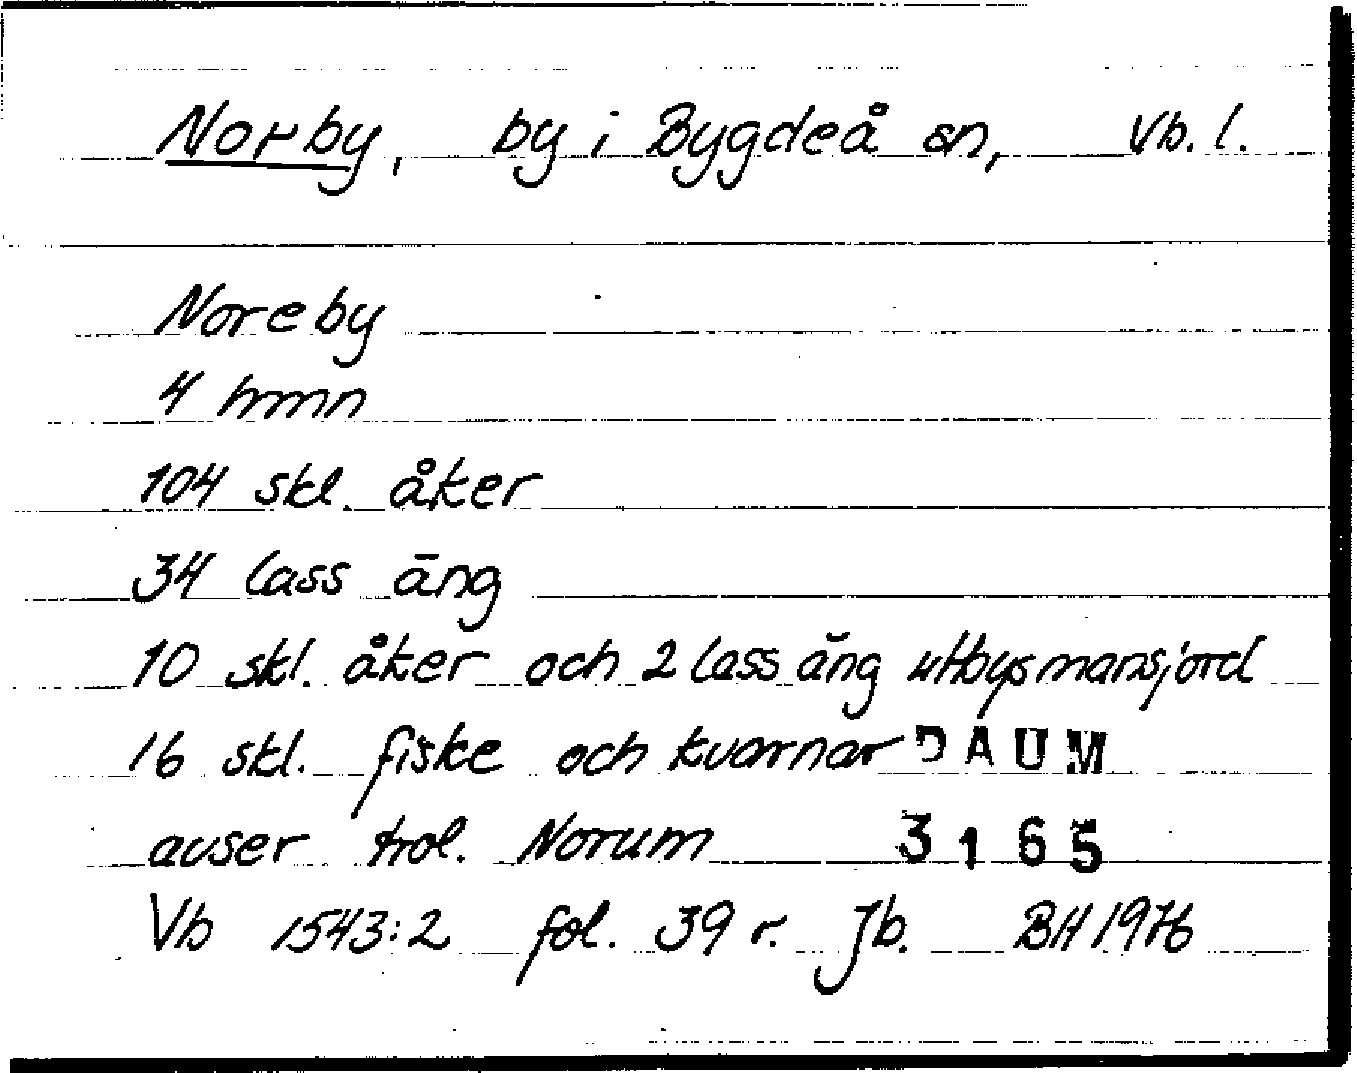 Norby, by i Bygdeå sn, Vb. l.
Noreby
4 hmn
104 skl. åker
34 lass äng
10 skl. åker och 2 lass äng utbysmansjord
16 skl. fiske och kvarnar DAUM
avser trol. Norum 3165
Vb 1543:2 fol. 39 r. Jb. BH 1976